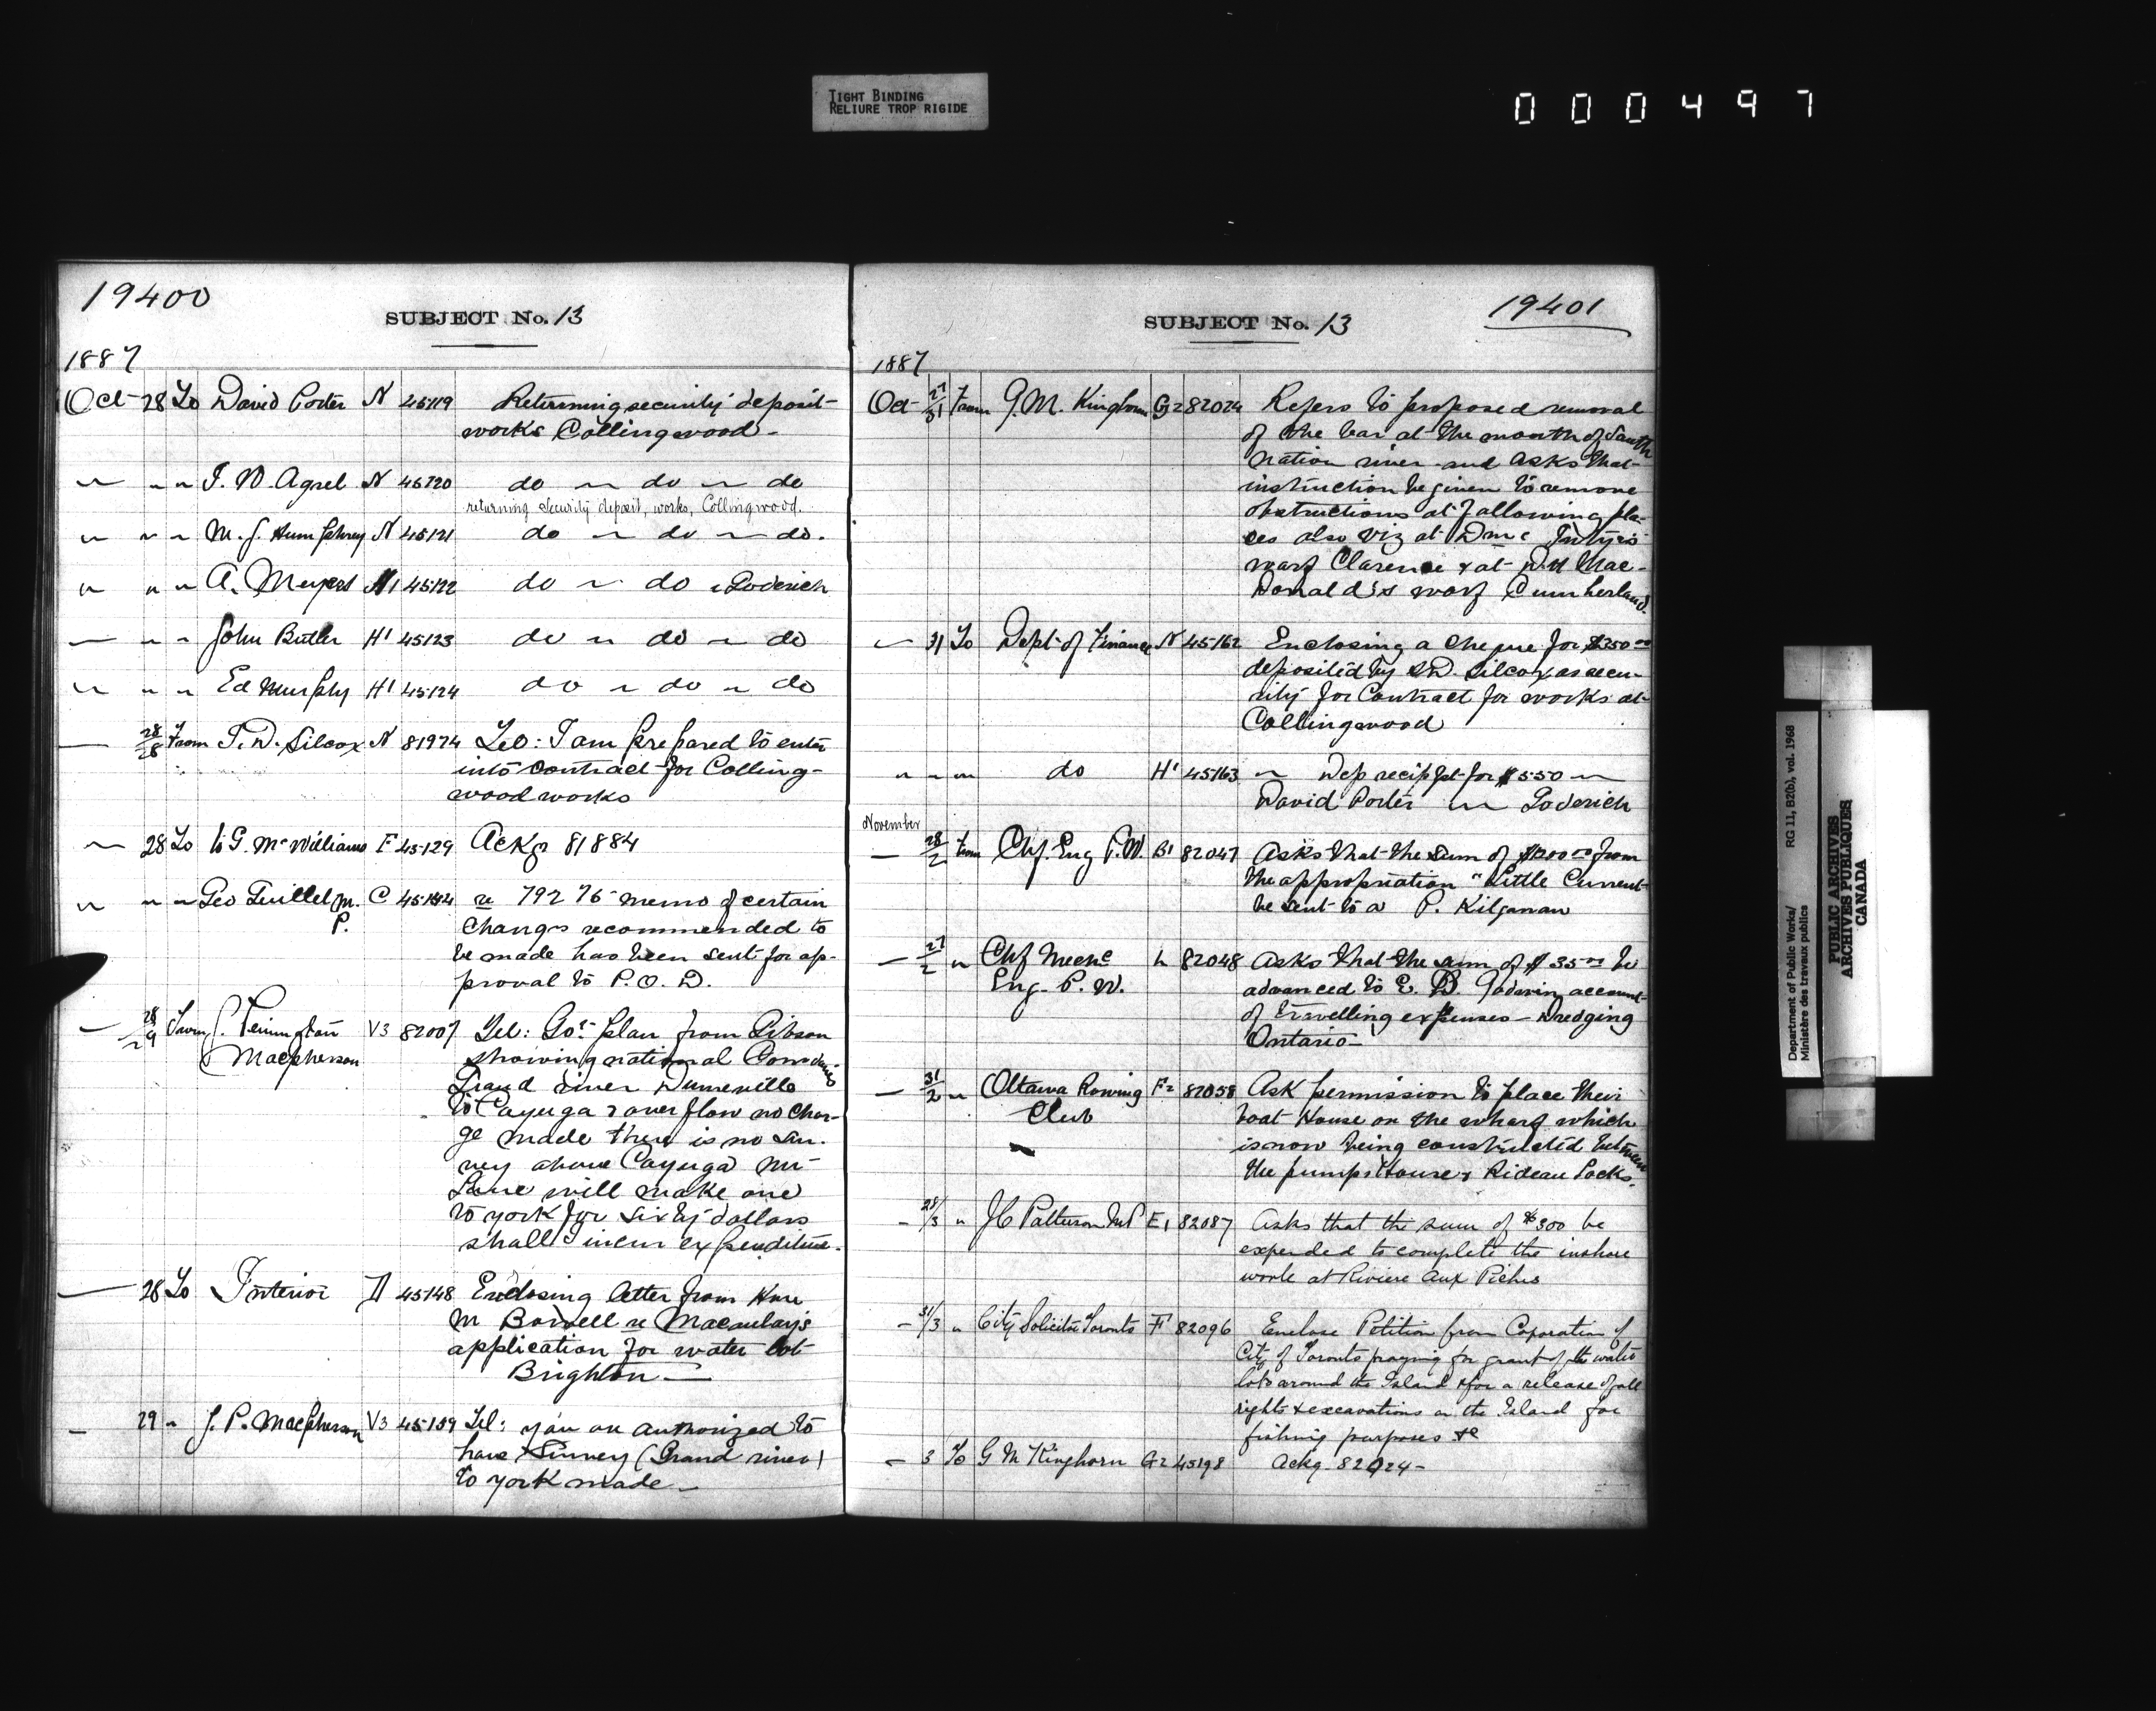 TIGHT BINDING
RELIURE TROP RIGIDE
000497
19400
SUBJECT No. 13
1887
Oct 28 To David Porter N 45119 Returning security deposit
works Collingwood -
" " " T. D. Agrel N 45120 do " do " do
returning security deposit, works, Collingwood.
" " " M. J. Humphrey N 45121 do " do " do.
" " " A. Meyers H1 45122 do " do " Goderich
" " " John Butler H1 45123 do " do " do
" " " Ed Murphy H1 45124 do " do " do
" 28/28 From T. D. Silcox N 81974 Tel: I am prepared to enter
into contract for Colling-
wood works
" 28 To W G. McWilliams F 45129 Ackg 81884
" " " Geo Guillet M. C re 79276 memo of certain
P. changes recommended to
be made has been sent for ap-
proval to P. O. D.
" 28/29 From J. Penington V3 82007 Tel: Got plan from Gibson
Macpherson showing national Boundaries
Grand river Dunnville
to Cayuga & overflow no char-
ge made there is no sur-
vey above Cayuga Mr
Lane will make one
to york for sixty dollars
shall I incur expenditure.
28 To Interior D 45148 Enclosing letter from Hon
M Bowell re Macaulay's
application for water lot
Brighton
29 " J. P. Macpherson V3 45159 Tel: you are authorized to
have survey (Grand river)
to york made -
19401
SUBJECT No. 13
1887
Oct 27/31 From G. M. Kinghorn G2 82024 Refers to proposed removal
of the bar at the mouth of South
nation river and asks that
instruction be given to remove
obstructions at following pla-
ces also viz at
warf Clarence & at D. H Mac-
Donald's warf Cumberland.
" 31 To Dept of Finance N 45162 Enclosing a cheque for $350 00
deposited by T D. Silcox as secu-
rity for Contract for works at
Collingwood
" " " do H1 45163 " Dep recipt for $550 "
David Porter " Goderich
November
28/2 From Chf. Eng P. W. B1 82047 Asks that the sum of from
the appropriation "Little Current
be sent to a P. Kilganan
27/2 " Chf Mech L 82048 Asks that the sum of $35 00 be
Eng. P. W. advanced to E. B. Godwin account
of travelling expenses - Dredging
Ontario
31/2 " Ottawa Rowing F2 82058 Ask permission to place their
Club boat House on the wharf which
is now being constructed between
the pumps House & Rideau Locks.
28/3 " J C Patterson MP E1 82087 Asks that the sum of $300 be
expended to complete the inshore
work at Riviere aux Pêches
31/3 " City Solicitor Toronto F 82096 Enclose Petition from Coporation of
City of Toronto praying for grant of the water
lots around the Island & for a release of all
rights & excavations on the Island for
fishing purposes &c
3 To G M Kinghorn G2 45198 Ackg. 82024 -
Department of Public Works/
Ministère des travaux publics
RG 11, B2(b), vol. 1968
PUBLIC ARCHIVES
ARCHIVES PUBLIQUES
CANADA